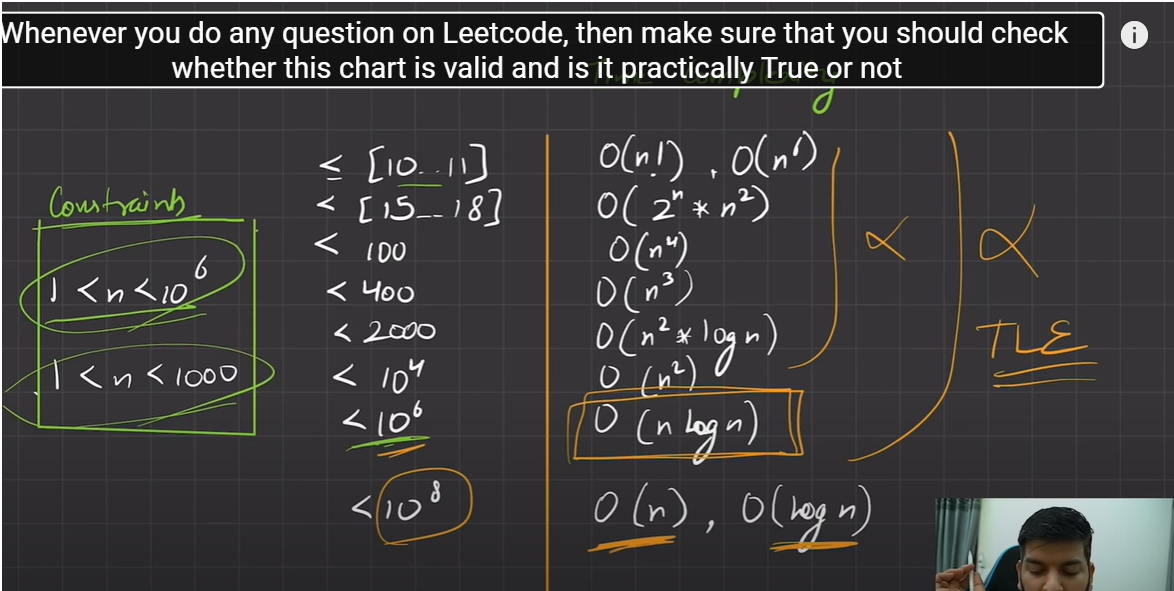 Whenever you do any question on Leetcode, then make sure that you should check
whether this chart is valid and is it practically True or not
Constraints
1 < n < 10⁶
1 < n < 1000
≤ [10..11] O(n!), O(n⁶)
< [15--18] O(2ⁿ * n²)
< 100 O(n⁴)
< 400 O(n³)
< 2000 O(n² * log n)
< 10⁴ O(n²)
< 10⁶ O(n log n)
< 10⁸ O(n), O(log n)
TLE